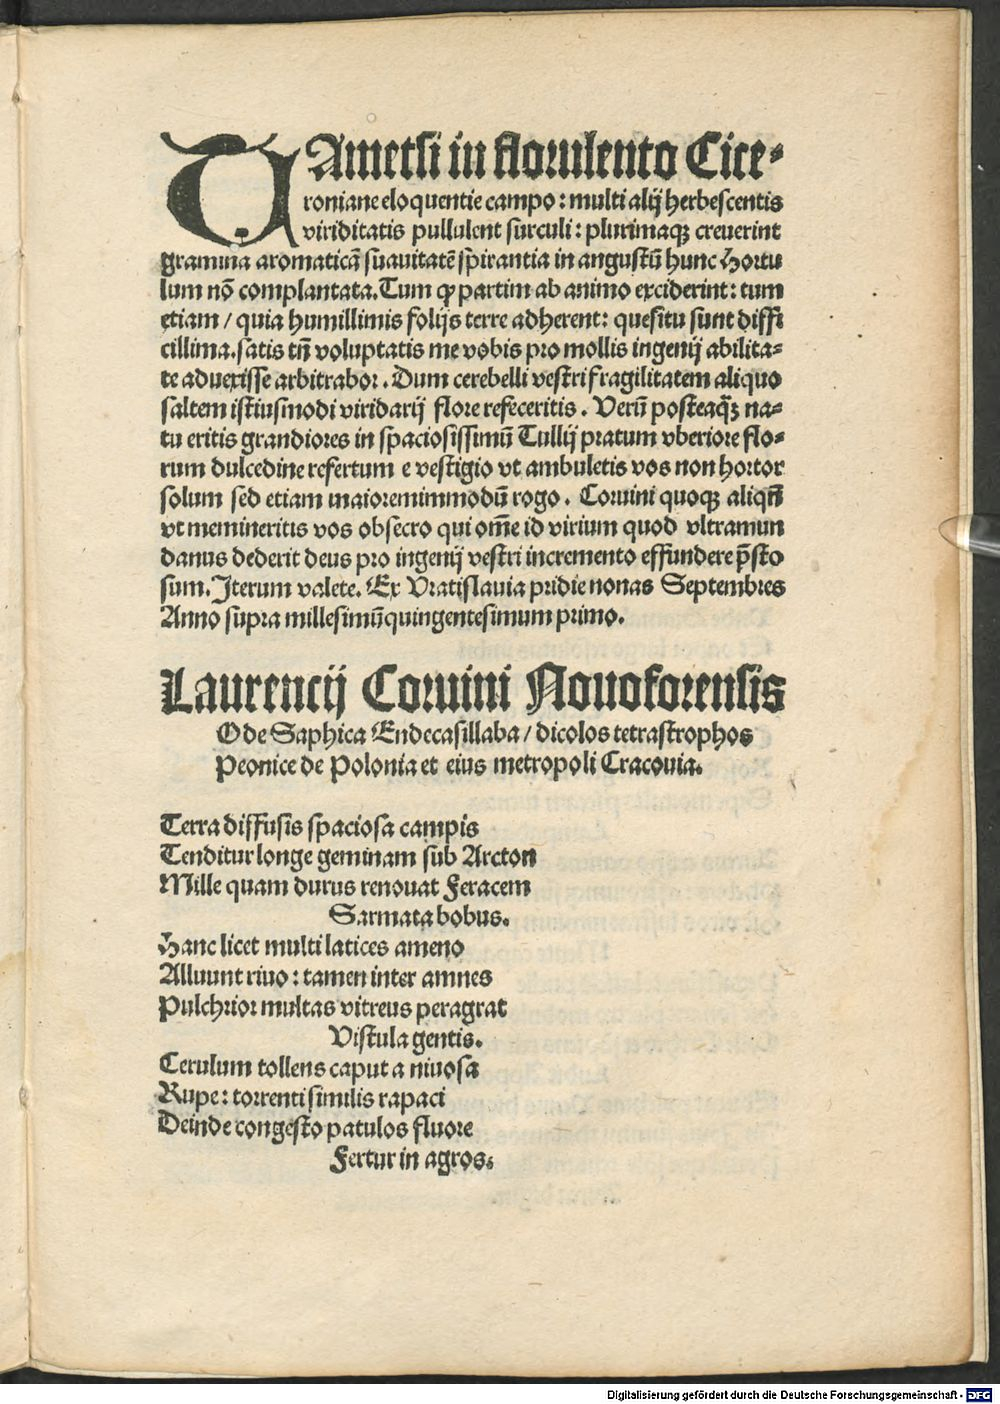 TAmetsi in florulento Cice⸗
roniane eloquentie campo: multi alij herbescentis
viriditatis pullulent surculi: plurimaqȝ creuerint
gramina aromaticā suauitatē spirantia in angustū hunc Hortu
lum nō complantata. Tum ꝙ partim ab animo exciderint: tum
etiam / quia humillimis folijs terre adherent: quesitu sunt diffi
cillima. satis tn̄ voluptatis me vobis pro mollis ingenij abilita⸗
te aduexisse arbitrabor. Dum cerebelli vestri fragilitatem aliquo
saltem istiusmodi viridarij flore refeceritis. Verū posteaq̄ȝ na⸗
tu eritis grandiores in spaciosissimū Tullij pratum vberiore flo⸗
rum dulcedine refertum e vestigio vt ambuletis vos non hortor
solum sed etiam maioremimmodū rogo. Coruini quoqȝ aliqn̄
vt memineritis vos obsecro qui om̄e id virium quod vltramun
danus dederit deus pro ingenij vestri incremento effundere p̄sto
sum. Iterum valete. Ex Vratislauia pridie nonas Septembres
Anno supra millesimūquingentesimum primo.
Laurencij Coruini Nouoforensis
Ode Saphica Endecasillaba / dicolos tetrastrophos
Peonice de Polonia et eius metropoli Cracouia.
Terra diffusis spaciosa campis
Tenditur longe geminam sub Arcton
Mille quam durus renouat Feracem
Sarmata bobus.
Hanc licet multi latices ameno
Alluunt riuo: tamen inter amnes
Pulchrior multas vitreus peragrat
Vistula gentis.
Cerulum tollens caput a niuosa
Rupe: torrenti similis rapaci
Deinde congesto patulos fluore
Fertur in agros.
Digitalisierung gefördert durch die Deutsche Forschungsgemeinschaft - DFG